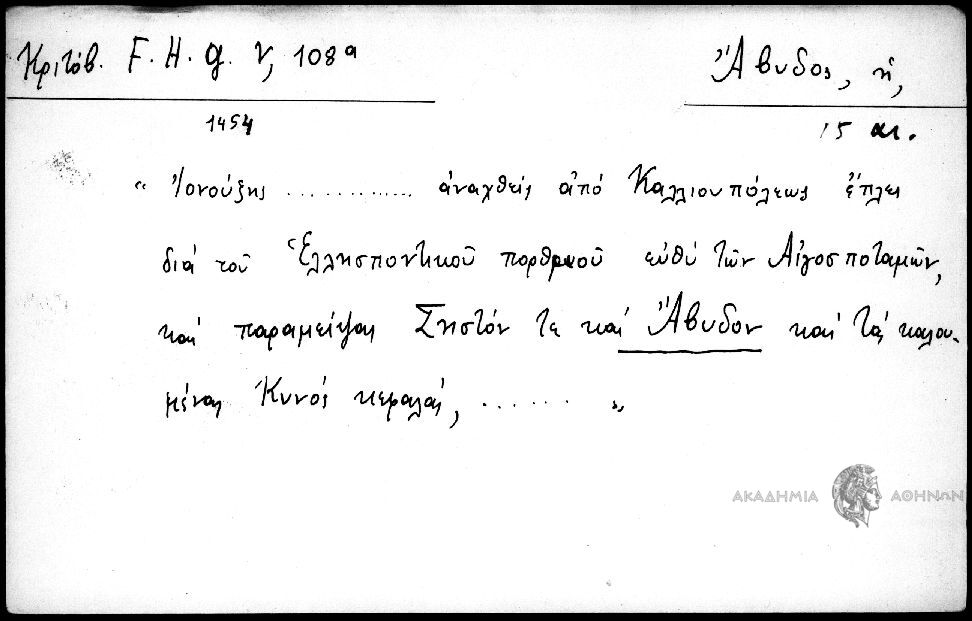 Κριτόβ. F. H. G. V, 108α
Ἄβυδος, ἡ,
1454
15 αι.
“ Ἰονούξης ............ ἀναχθείς ἀπό Καλλιουπόλεως ἔπλει
διά τοῦ Ἑλλησποντικοῦ πορθμοῦ εὐθύ τῶν Αἰγοσποταμῶν,
καί παραμείψας Σηστόν τε καί Ἄβυδον καί τάς καλου-
μένας Κυνός κεφαλάς, ...... „
ΑΚΑΔΗΜΙΑ ΑΘΗΝΩΝ